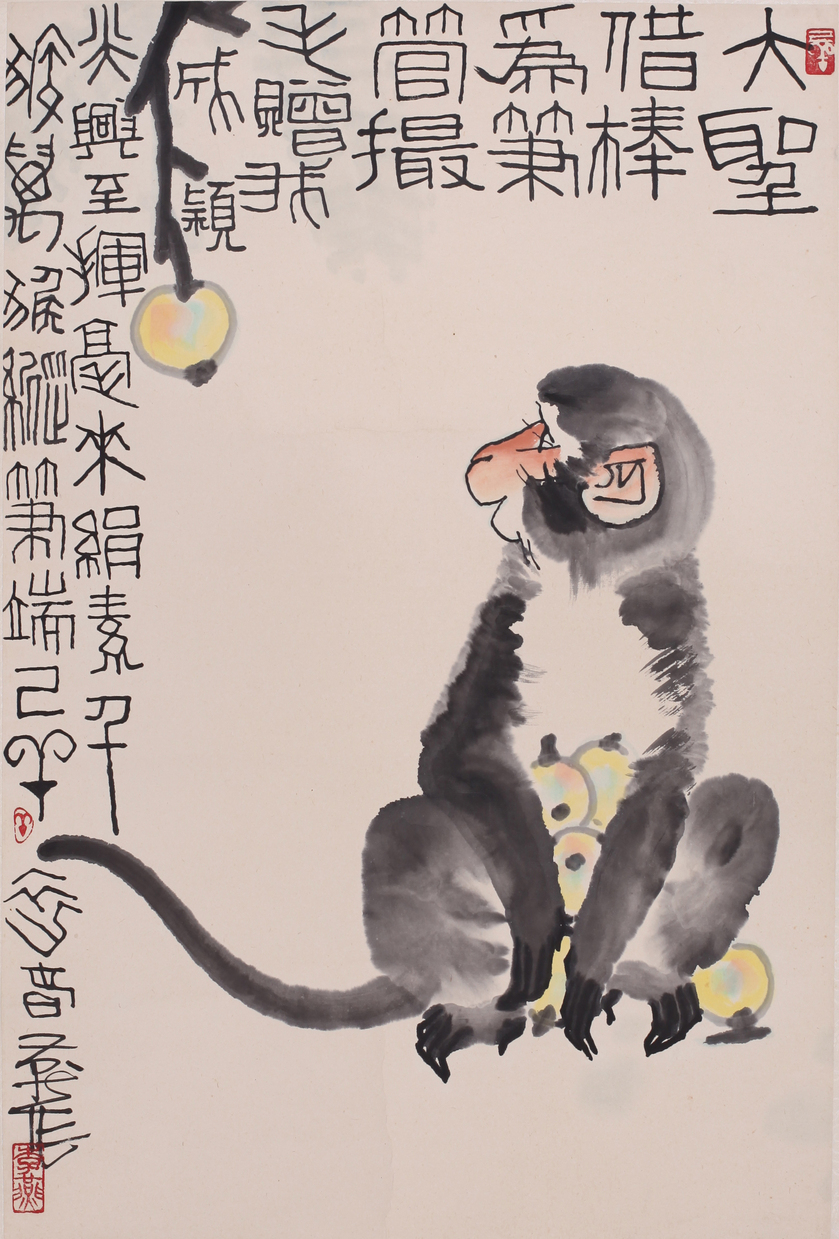 大聖
借棒
為筆
管撮
毛贈我
成穎
興至揮毫來絹素千
猴萬猴縱筆端己羊
作